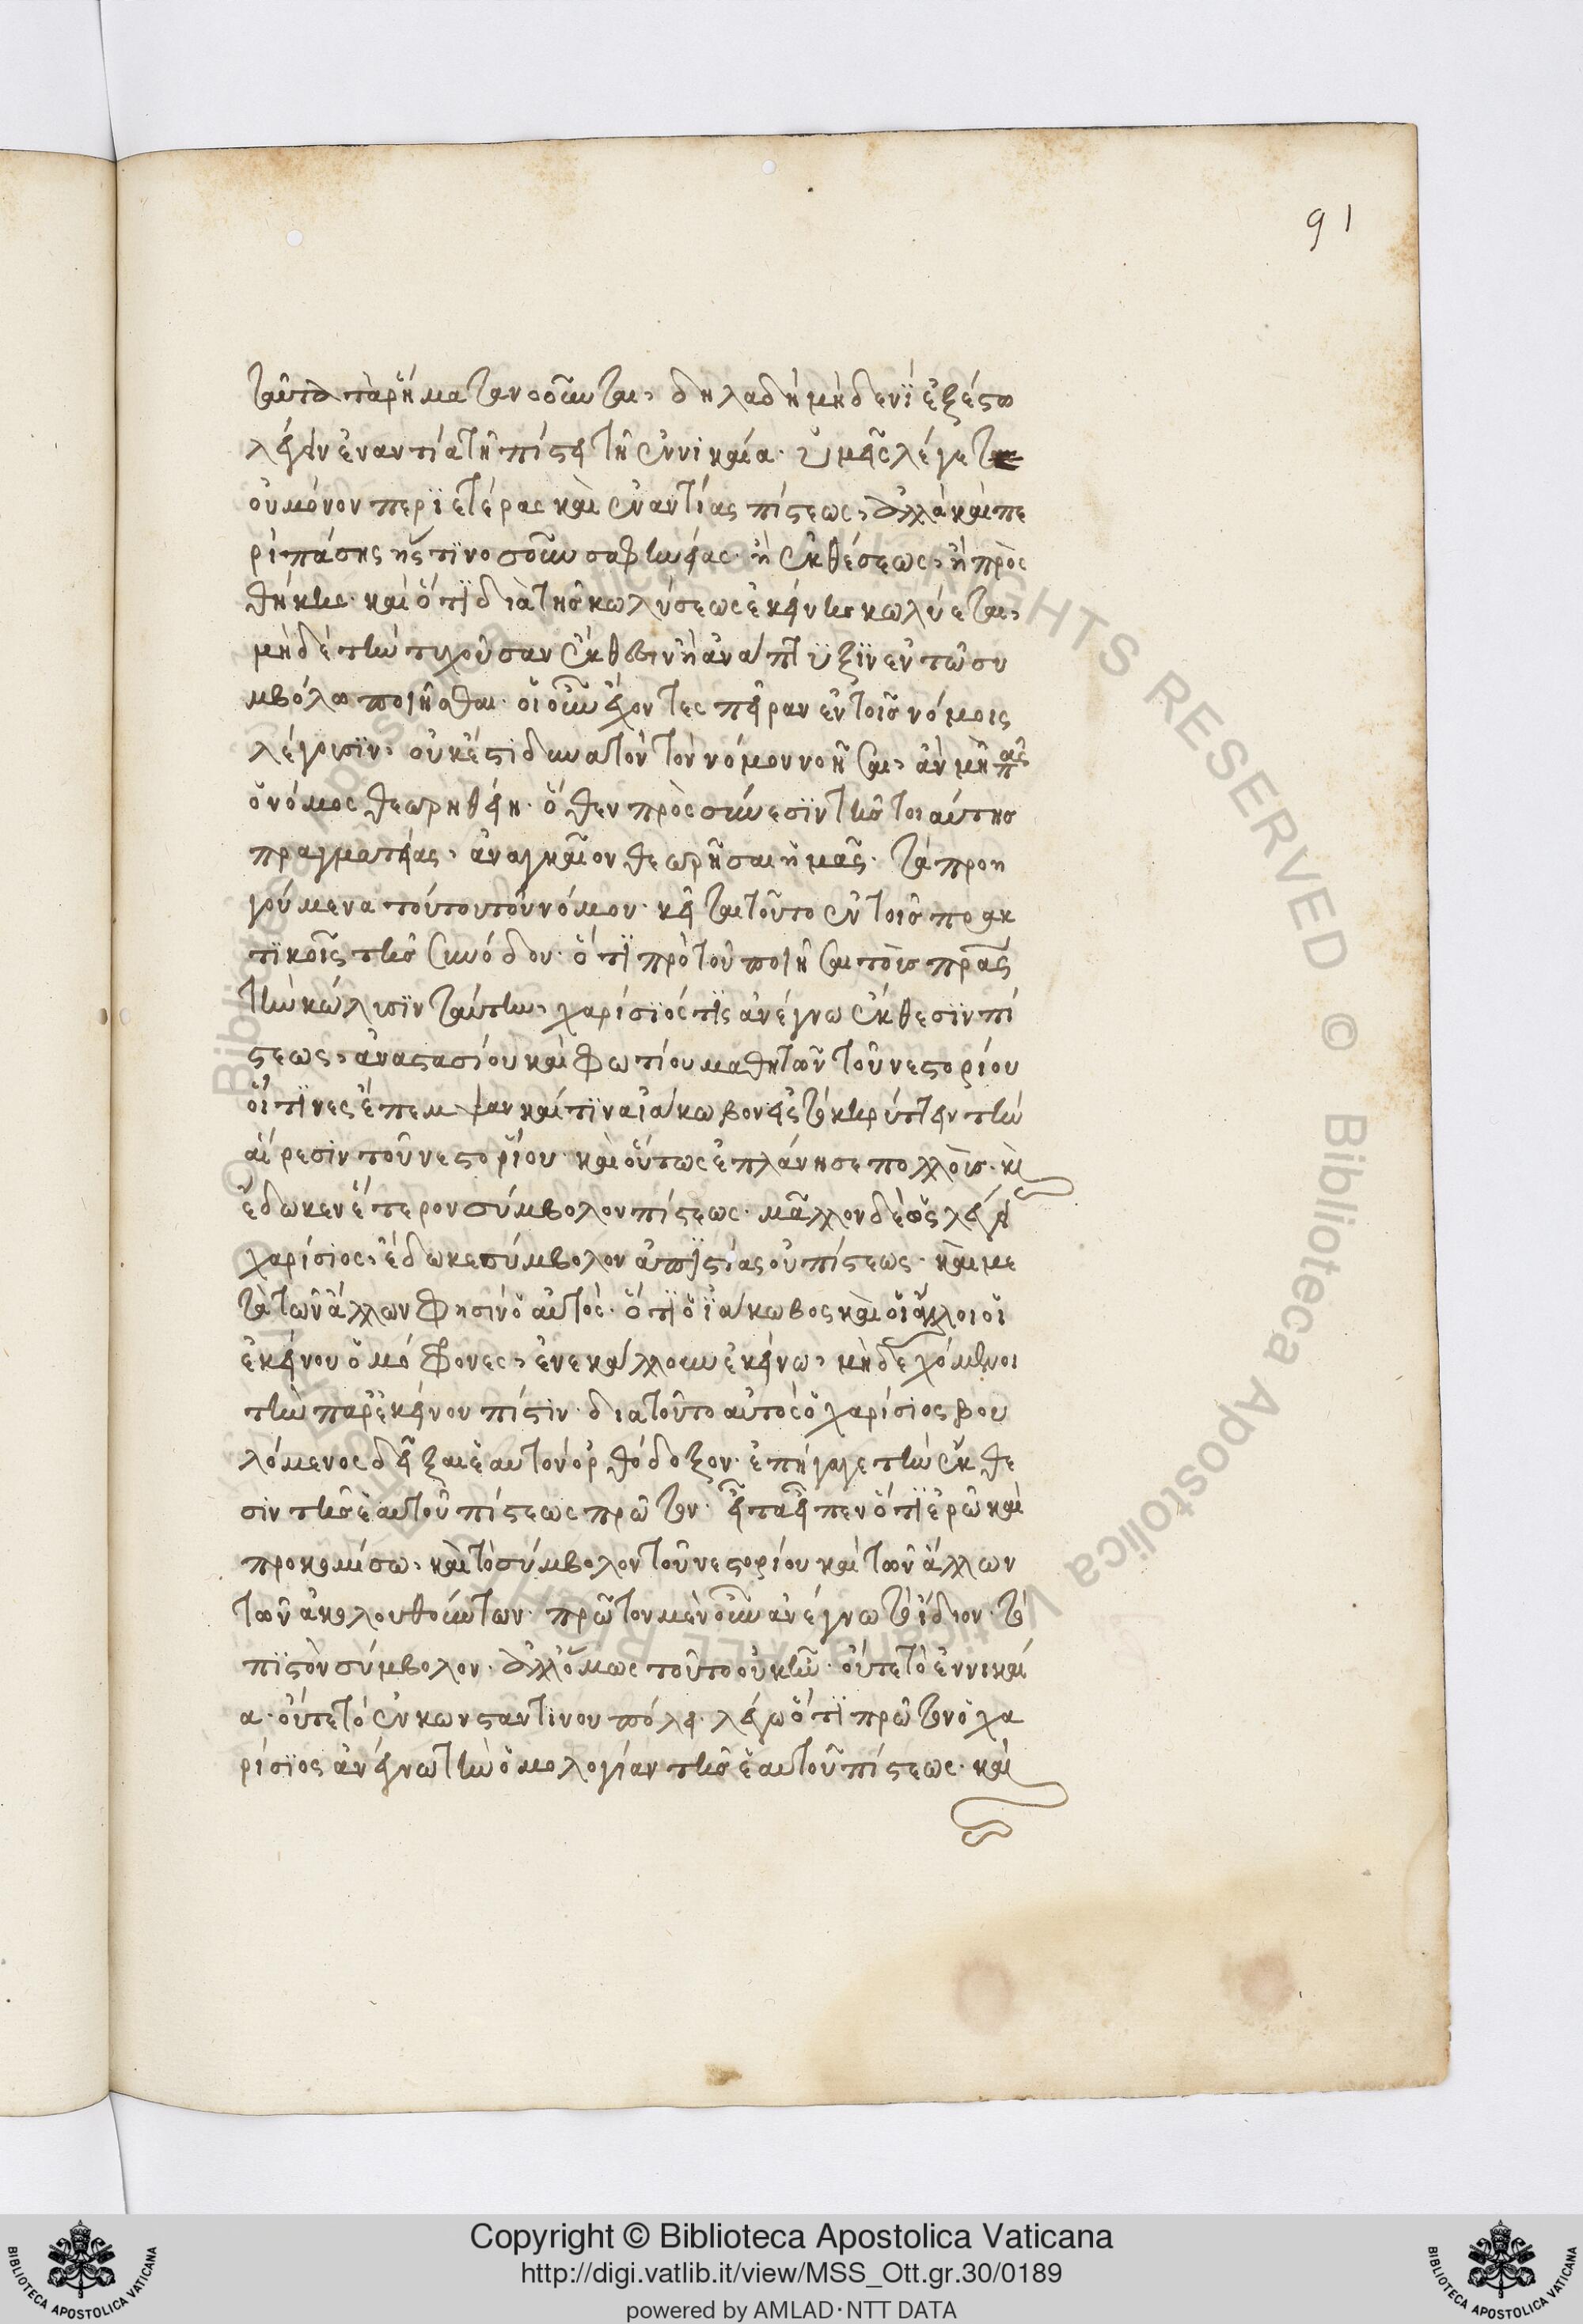 91
ταῦτα τὰ ῥήματα νοοῦνται, δηλαδὴ μηδενὶ ἐξέστω
λέγειν ἐναντία τῆ πίστει τῆ ἐν νικαία· ὑμεῖς λέγεται
οὐ μόνον περὶ ἑτέρας καὶ ἐναντίας πίστεως, ἀλλὰ καὶ πε
ρὶ πάσης ἧς τινοσοῦν σαφηνείας· ἢ ἐκθέσεως, ἢ προσ
θήκης· καὶ ὅτι διὰ τῆς κωλύσεως ἐκείνης κωλύεται,
μηδὲ τὴν τυχοῦσαν ἔκθεσιν ἢ ἀνάπτυξιν ἐν τῶ συ
μβόλω ποιῆσθαι· οἱ οὖν ἔχοντες πεῖραν ἐν τοῖς νόμοις
λέγουσιν, οὐκ ἔστι δυνατὸν τὸν νόμον νοῆσαι, ἂν μὴ πᾶς
ὁ νόμος θεωρηθείη· ὅθεν πρὸς σύνεσιν τῆς τοιαύτης
πραγματείας, ἀναγκαῖον θεωρῆσαι ἡμᾶς· τὰ προη
γούμενα τούτου τοῦ νόμου· κεῖται τοῦτο ἐν τοῖς πρακ
τικοῖς τῆς συνόδου· ὅτι πρὸ τοῦ ποιῆσαι τοὺς πρας
τὴν κώλυσιν ταύτην, χαρίσιός τις ἀνέγνω ἔκθεσιν πί
στεως, ἀναστασίου καὶ φωτίου μαθητῶν τοῦ νεστορίου
οἵτινες ἔπεμψαν καί τινα ἰάκωβον εἰς τὸ κηρύττειν τὴν
αἵρεσιν τοῦ νεστορίου· καὶ οὕτως ἐπλάνησε πολλοὺς· κὶ
ἔδωκεν ἕτερον σύμβολον πίστεως· μᾶλλον δὲ ὡς λέγει
χαρίσιος, ἔδωκε σύμβολον ἀπιστίας οὐ πίστεως· καὶ με
τὰ τῶν ἄλλων φησὶν ὁ αὐτὸς· ὅτι ὁ ἰάκωβος καὶ οἱ ἄλλοι οἱ
ἐκείνου ὁμόφονες, ἐνεκάλλουν ἐκείνω, μὴ δεχόμενοι
τὴν παρ' ἐκείνου πίστιν· διὰ τοῦτο αὐτὸς ὁ χαρίσιος βου
λόμενος δεῖξαι ἑαυτὸν ὀρθόδοξον· ἐπήγαγε τὴν ἔκθε
σιν τῆς ἑαυτοῦ πίστεως πρῶτον· εἶτα εἶπεν ὅτι ἐρῶ καὶ
προκομίσω, καὶ τὸ σύμβολον τοῦ νεστορίου καὶ τῶν ἄλλων
τῶν ἀκολουθούντων· πρῶτον μὲν οὖν ἀνέγνω τὸ ἴδιον· τὸ
πιστὸν σύμβολον· ἀλλ' ὅμως τοῦτο οὐκ ἦν· οὔτε τὸ ἐν νικαί
α· οὔτε τὸ ἐν κωνσταντινουπόλει· λέγω ὅτι πρῶτον ὁ χα
ρίσιος ἀνέγνω τὴν ὁμολογίαν τῆς ἑαυτοῦ πίστεως· καὶ
© Biblioteca Apostolica Vaticana ALL RIGHTS RESERVED
Copyright © Biblioteca Apostolica Vaticana
http://digi.vatlib.it/view/MSS_Ott.gr.30/0189
powered by AMLAD·NTT DATA
BIBLIOTECA APOSTOLICA VATICANA
BIBLIOTECA APOSTOLICA VATICANA